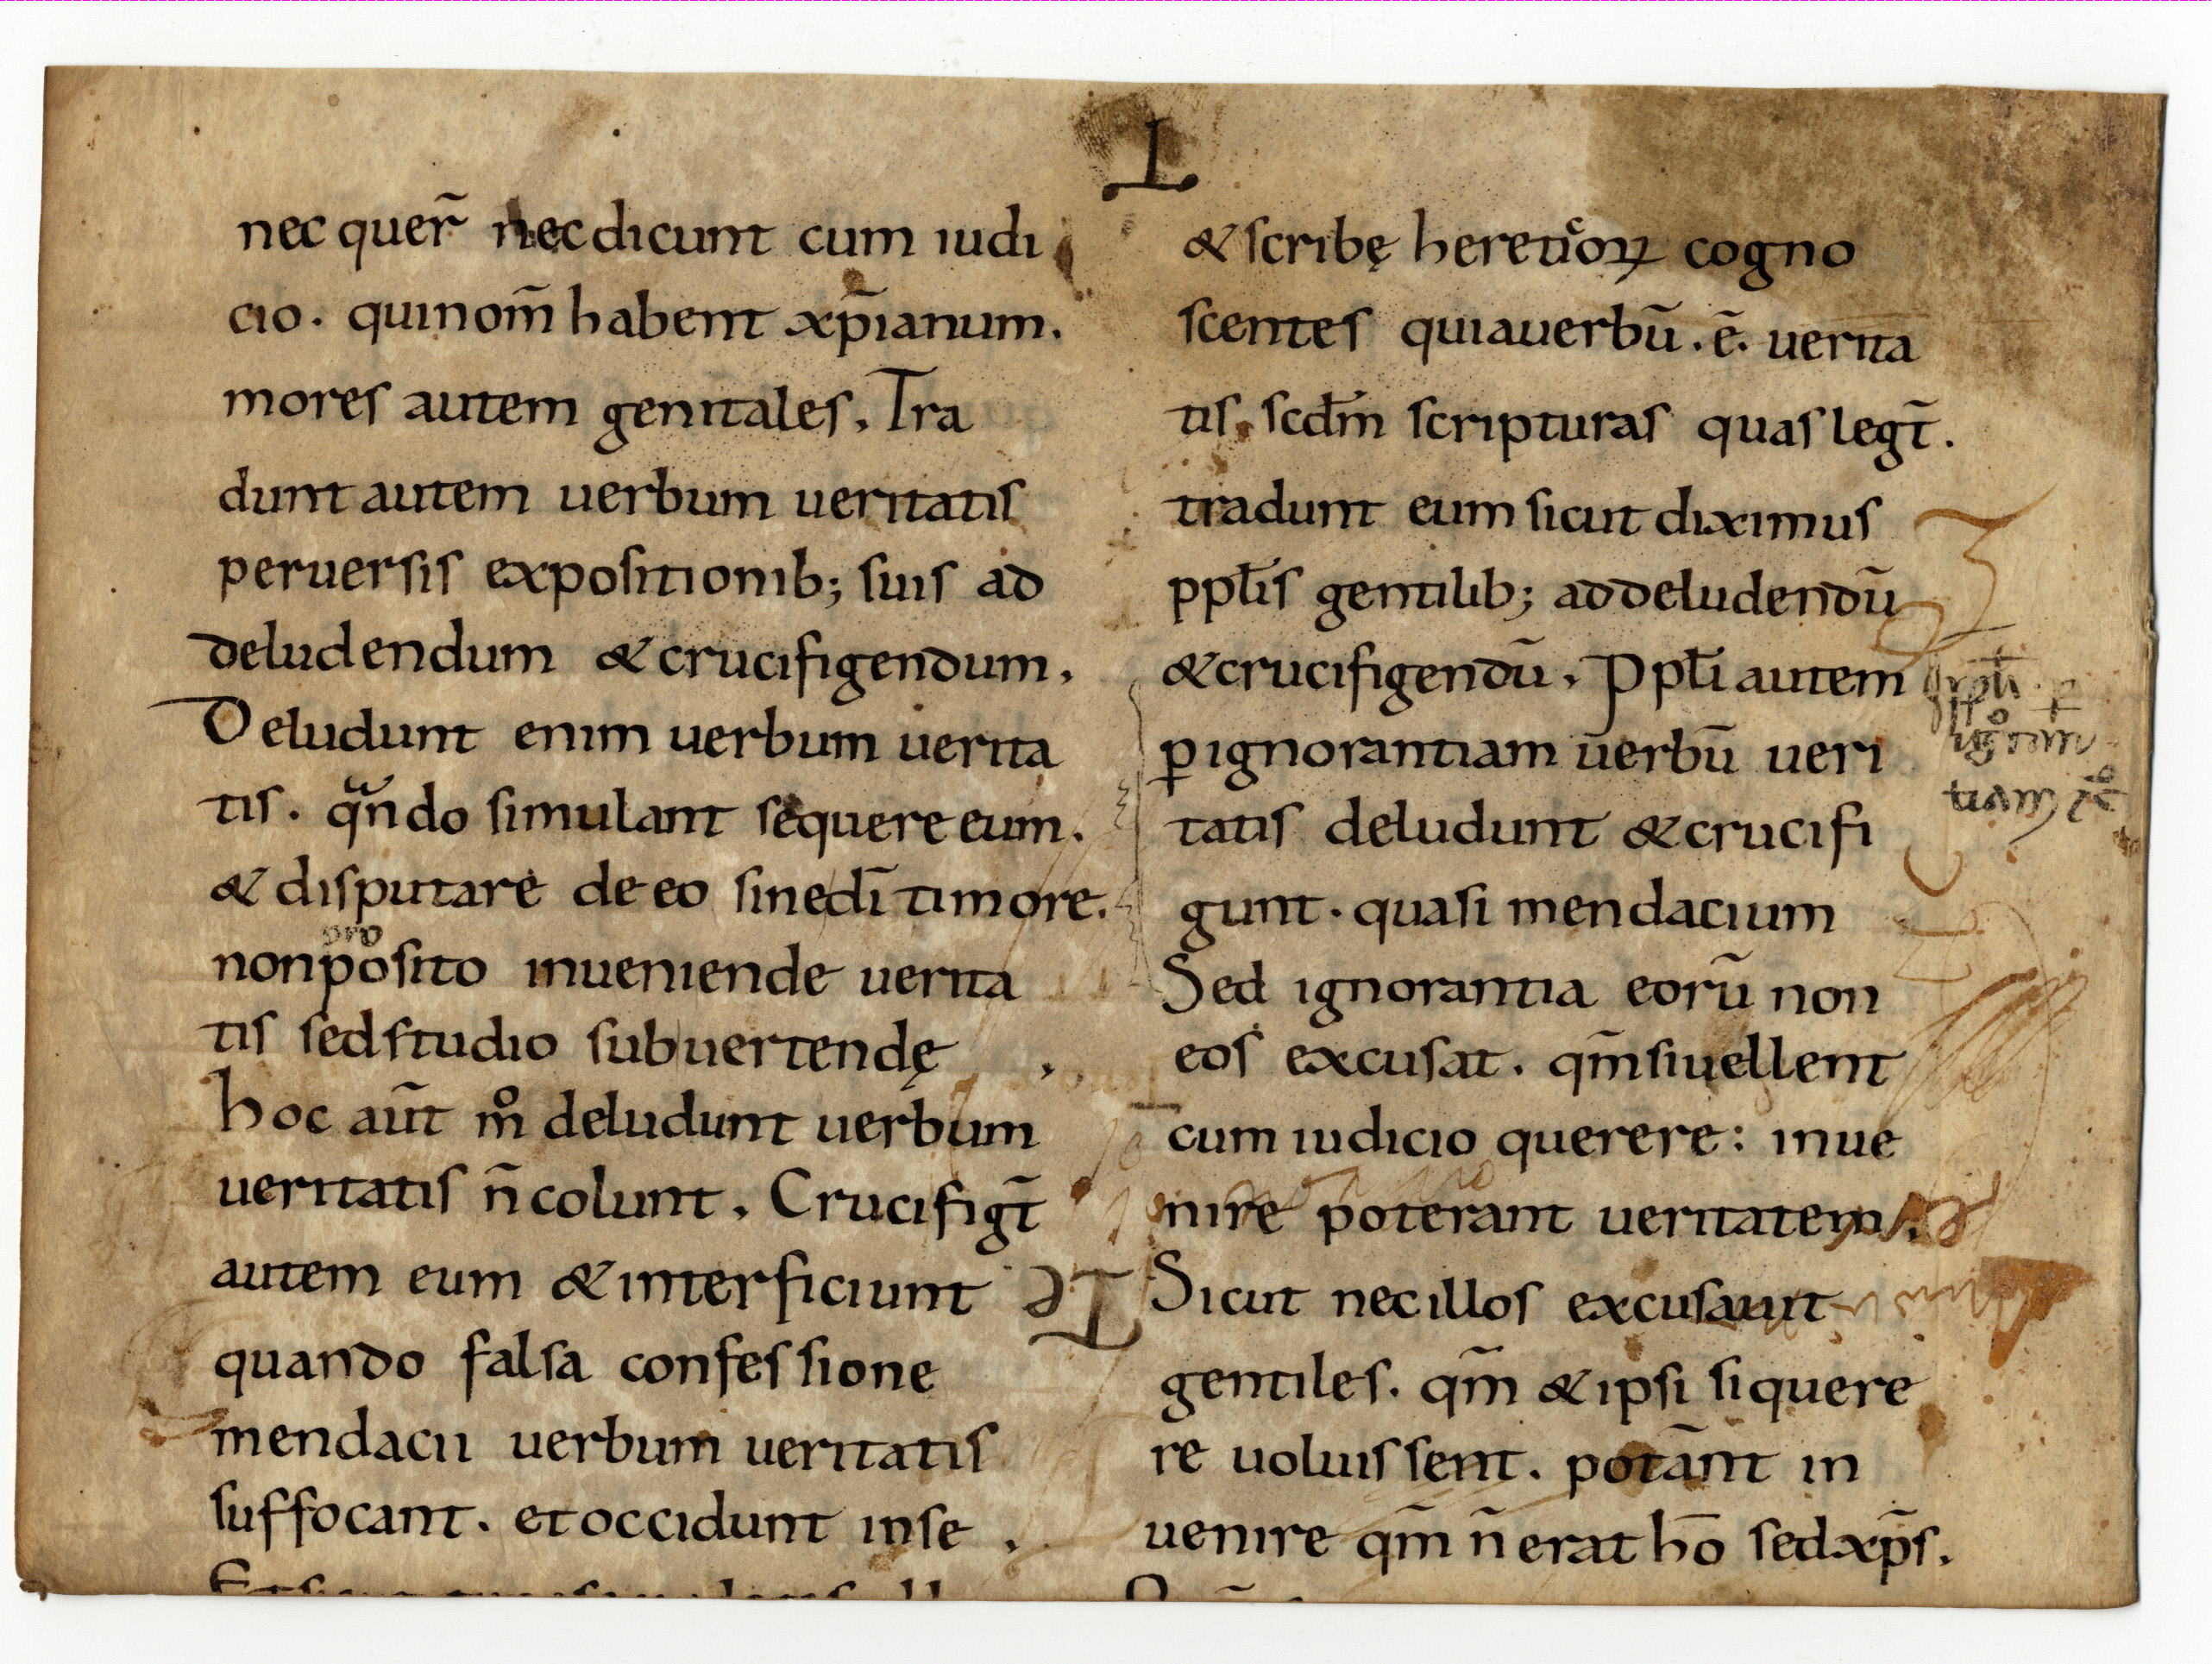 nec quer̃ nec dicunt cum iudi
cio. qui nom̃ habent xp̃ianum.
mores autem genitales. Tra
dunt autem uerbum ueritatis
peruersis expositionib; suis ad
deludendum & crucifigendum.
Deludunt enim uerbum uerita
tis. qͣndo simulant sequere eum.
& disputare de eo sine dī timore.
non ꝓposito inueniende uerita
tis sed studio subuertendę
hoc aūt m̊ deludunt uerbum
ueritatis ñ colunt. Crucifigt̃
autem eum & interficiunt
quando falsa confessione
mendacii uerbum ueritatis
suffocant. et occidunt in se.
& scribę hereticoꝝ cogno
scentes quia uerbū .ē. uerita
tis. scdm̄ scripturas quas legt̃.
tradunt eum sicut diximus
pplīs gentilib; ad deludendū
& crucifigendū. Pplī autem
ꝑ ignorantiam uerbū ueri
tatis deludunt & crucifi
gunt. quasi mendacium
Sed ignorantia eorū non
eos excusat. qm̃ si uellent
cum iudicio querere: inue
nire poterant ueritatem.
Sicut nec illos excusauit
gentiles. qm̃ & ipsi si quere
re uoluissent. potãnt in
uenire qm̃ ñ erat hō sed xp̃s.